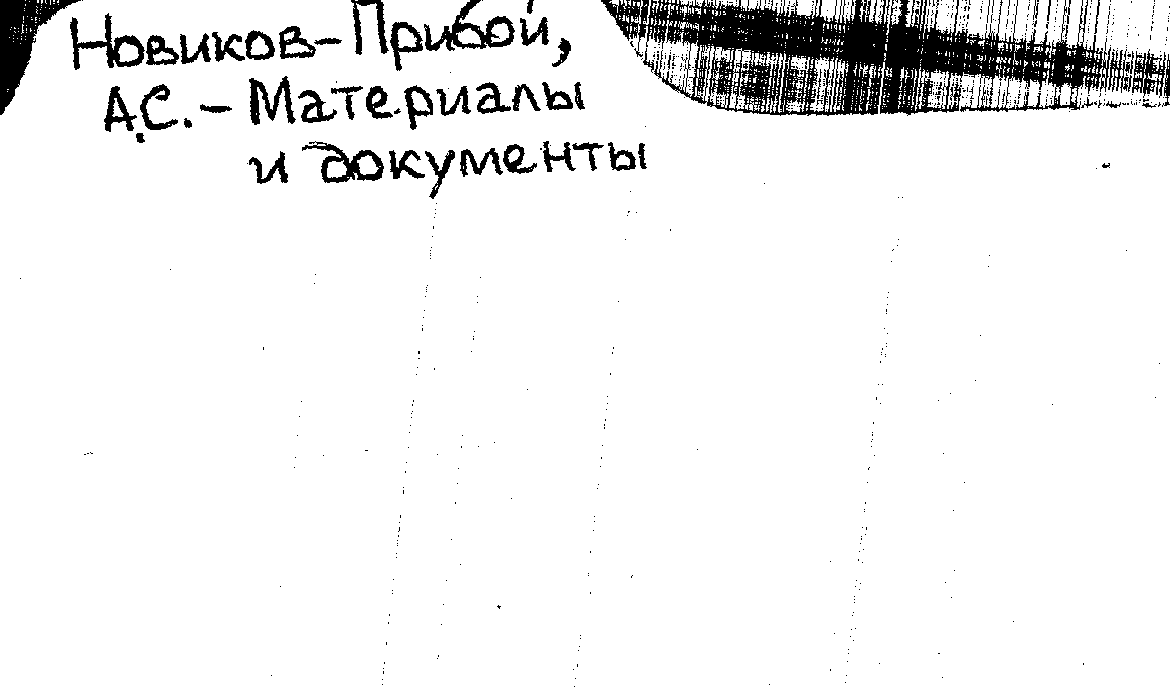 Новиков-Прибой,
А.С. - Материалы
и документы